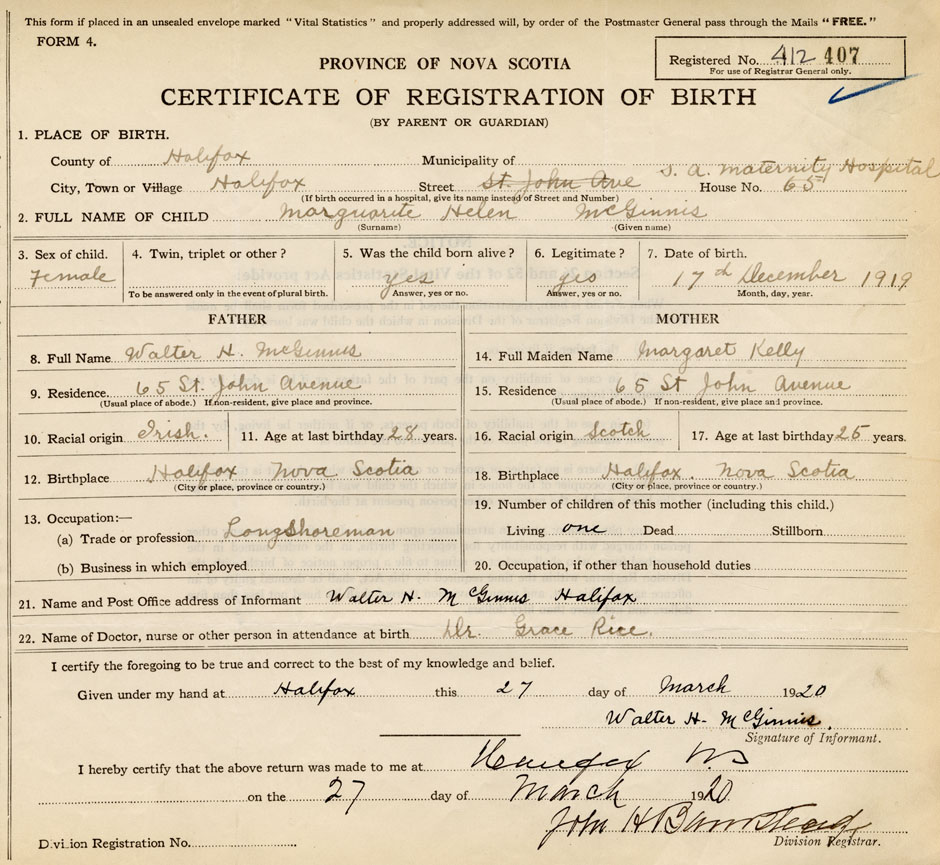 This form if placed in an unsealed envelope marked "Vital Statistics" and properly addressed will, by order of the Postmaster General pass through the Mails "FREE."
FORM 4.
Registered No. 412 407
For use of Registrar General only.
PROVINCE OF NOVA SCOTIA
CERTIFICATE OF REGISTRATION OF BIRTH
(BY PARENT OR GUARDIAN)
1. PLACE OF BIRTH.
County of Halifax Municipality of
S. A. Maternity Hospital
City, Town or Village Halifax Street St. John Ave House No. 65
(If birth occurred in a hospital, give its name instead of Street and Number)
2. FULL NAME OF CHILD Marguarite Helen McGinnis
(Surname) (Given name)
3. Sex of child. 4. Twin, triplet or other? 5. Was the child born alive? 6. Legitimate? 7. Date of birth.
Female yes yes 17th December 1919
To be answered only in the event of plural birth. Answer, yes or no. Answer, yes or no. Month, day, year.
FATHER MOTHER
8. Full Name Walter H. McGinnis 14. Full Maiden Name Margaret Kelly
9. Residence. 65 St. John Avenue 15. Residence 65 St John Avenue
(Usual place of abode.) If non-resident, give place and province. (Usual place of abode.) If non-resident, give place and province.
10. Racial origin Irish. 11. Age at last birthday 28 years. 16. Racial origin Scotch 17. Age at last birthday 25 years.
12. Birthplace Halifax Nova Scotia 18. Birthplace Halifax. Nova Scotia
(City or place, province or country.) (City or place, province or country.)
13. Occupation:— 19. Number of children of this mother (including this child.)
(a) Trade or profession Longshoreman Living one Dead Stillborn
(b) Business in which employed 20. Occupation, if other than household duties
21. Name and Post Office address of Informant Walter H. McGinnis Halifax
22. Name of Doctor, nurse or other person in attendance at birth Dr. Grace Rice.
I certify the foregoing to be true and correct to the best of my knowledge and belief.
Given under my hand at Halifax this 27 day of March 1920
Walter H. McGinnis.
Signature of Informant.
I hereby certify that the above return was made to me at Halifax N.S
on the 27 day of March 1920
John H Barnstead
Division Registration No. Division Registrar.